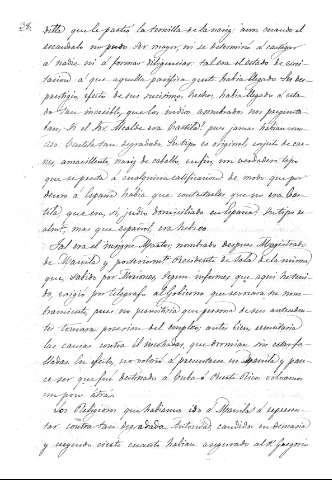 38.
ditta que le partió la ternilla de la nariz; aun cuando el
escándalo no pudo ser mayor, ni se determinó a castigar
a nadie ni a formar diligencias: tal era el estado de
á que aquella pacífica gente había llegado. Su des-
prestigio, efecto de sus sucísimos hechos, había llegado á esta-
do tan increible, que los indios asombrados nos pregunta-
ban, si el Sor Alcalde era Castila? pues jamas habían cono-
cido Castila tan degradado. Su tipo es original, conjunto de car-
nes, amarillento, nariz de caballo, en fin, un verdadero tipo
que se presta á cualquiera calificacion: de modo que por
decoro á España había que contestarles que no era Cas-
tila, que era, sí, judío domiciliado en España. Su tipo es
mas que español, era hebreo.
Tal era el insigne nombrado despues Magistrado
de Manila y posteriormte Presidente de Sala de la misma
que, sabido por segun informes que aquí he teni-
do, exigió por telégrafo al Gobierno que se retirara su nom-
bramiento, pues no permitiría que persona de sus anteceden-
tes tomara posesion del empleo; antes bien removería
las causas contra él incohadas, que dormían sin estar fa-
lladas. En efecto, no volvió á presentarse en Manila y pare-
ce ser que fué destinado á Cuba ó Puerto Rico. Volvamos
un poco atrás.
Los Religiosos que habíamos ido á Manila á represen-
tar contra tan degradada autoridad, cundida en demasía
y siguiendo cierto cuanto habían asegurado al Sr Gregorio